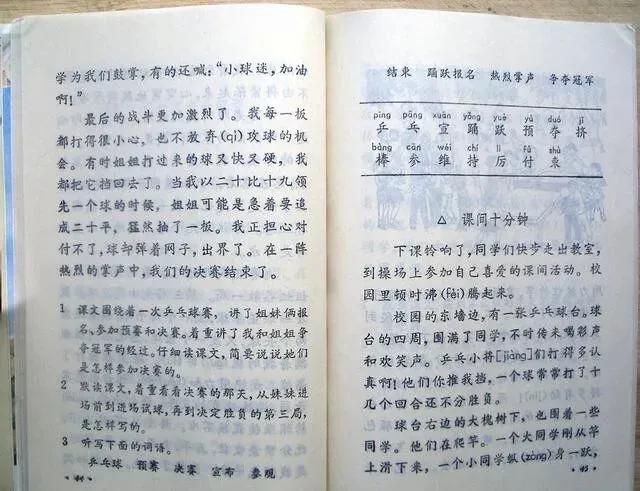 学为我们鼓掌，有的还喊：“小球迷，加油
啊！”
最后的战斗更加激烈了。我每一板
都打得很小心，也不放弃(qì)攻球的机
会。有时姐姐打过来的球又快又硬，我
都把它挡回去了。当我以二十比十九领
先一个球的时候，姐姐可能是急着要追
成二十平，猛然抽了一板。我正担心对
付不了，球却弹着网子，出界了。在一阵
热烈的掌声中，我们的决赛结束了。
1 课文围绕着一次乒乓球赛，讲了姐妹俩报
名、参加预赛和决赛。着重讲了我和姐姐争
夺冠军的经过。仔细读课文，简要说说她们
是怎样参加决赛的。
2 默读课文，着重看看决赛的那天，从妹妹进
场前到进场试球，再到决定胜负的第三局，
是怎样写的。
3 听写下面的词语。
乒乓球 预赛 决赛 宣布 参观
结束 踊跃报名 热烈掌声 争夺冠军
pīng pāng xuān yǒng yuè yù duó jǐ
乒 乓 宣 踊 跃 预 夺 挤
bàng cān wéi chí lì fù shù
棒 参 维 持 厉 付 束
△ 课间十分钟
下课铃响了，同学们快步走出教室，
到操场上参加自己喜爱的课间活动。校
园里顿时沸(fèi)腾起来。
校园的东墙边，有一张乒乓球台。球
台的四周，围满了同学，不时传来喝彩声
和欢笑声。乒乓小将[jiàng]们打得多认
真啊！他们你推我挡，一个球常常打了十
几个回合还不分胜负。
球台右边的大槐树下，也围着一些
同学。他们在爬竿。一个大同学刚从竿
上滑下来，一个小同学纵(zòng)身一跃，